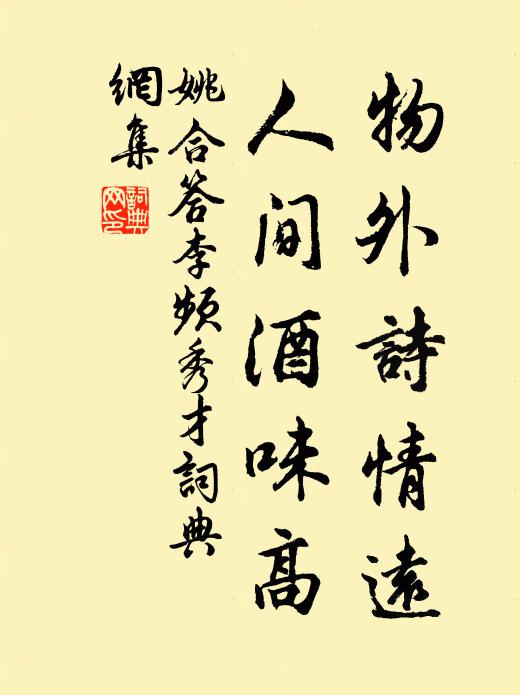 物外詩情遠
人间酒味高
姚合答李频秀才詞典
網集
詞典网印